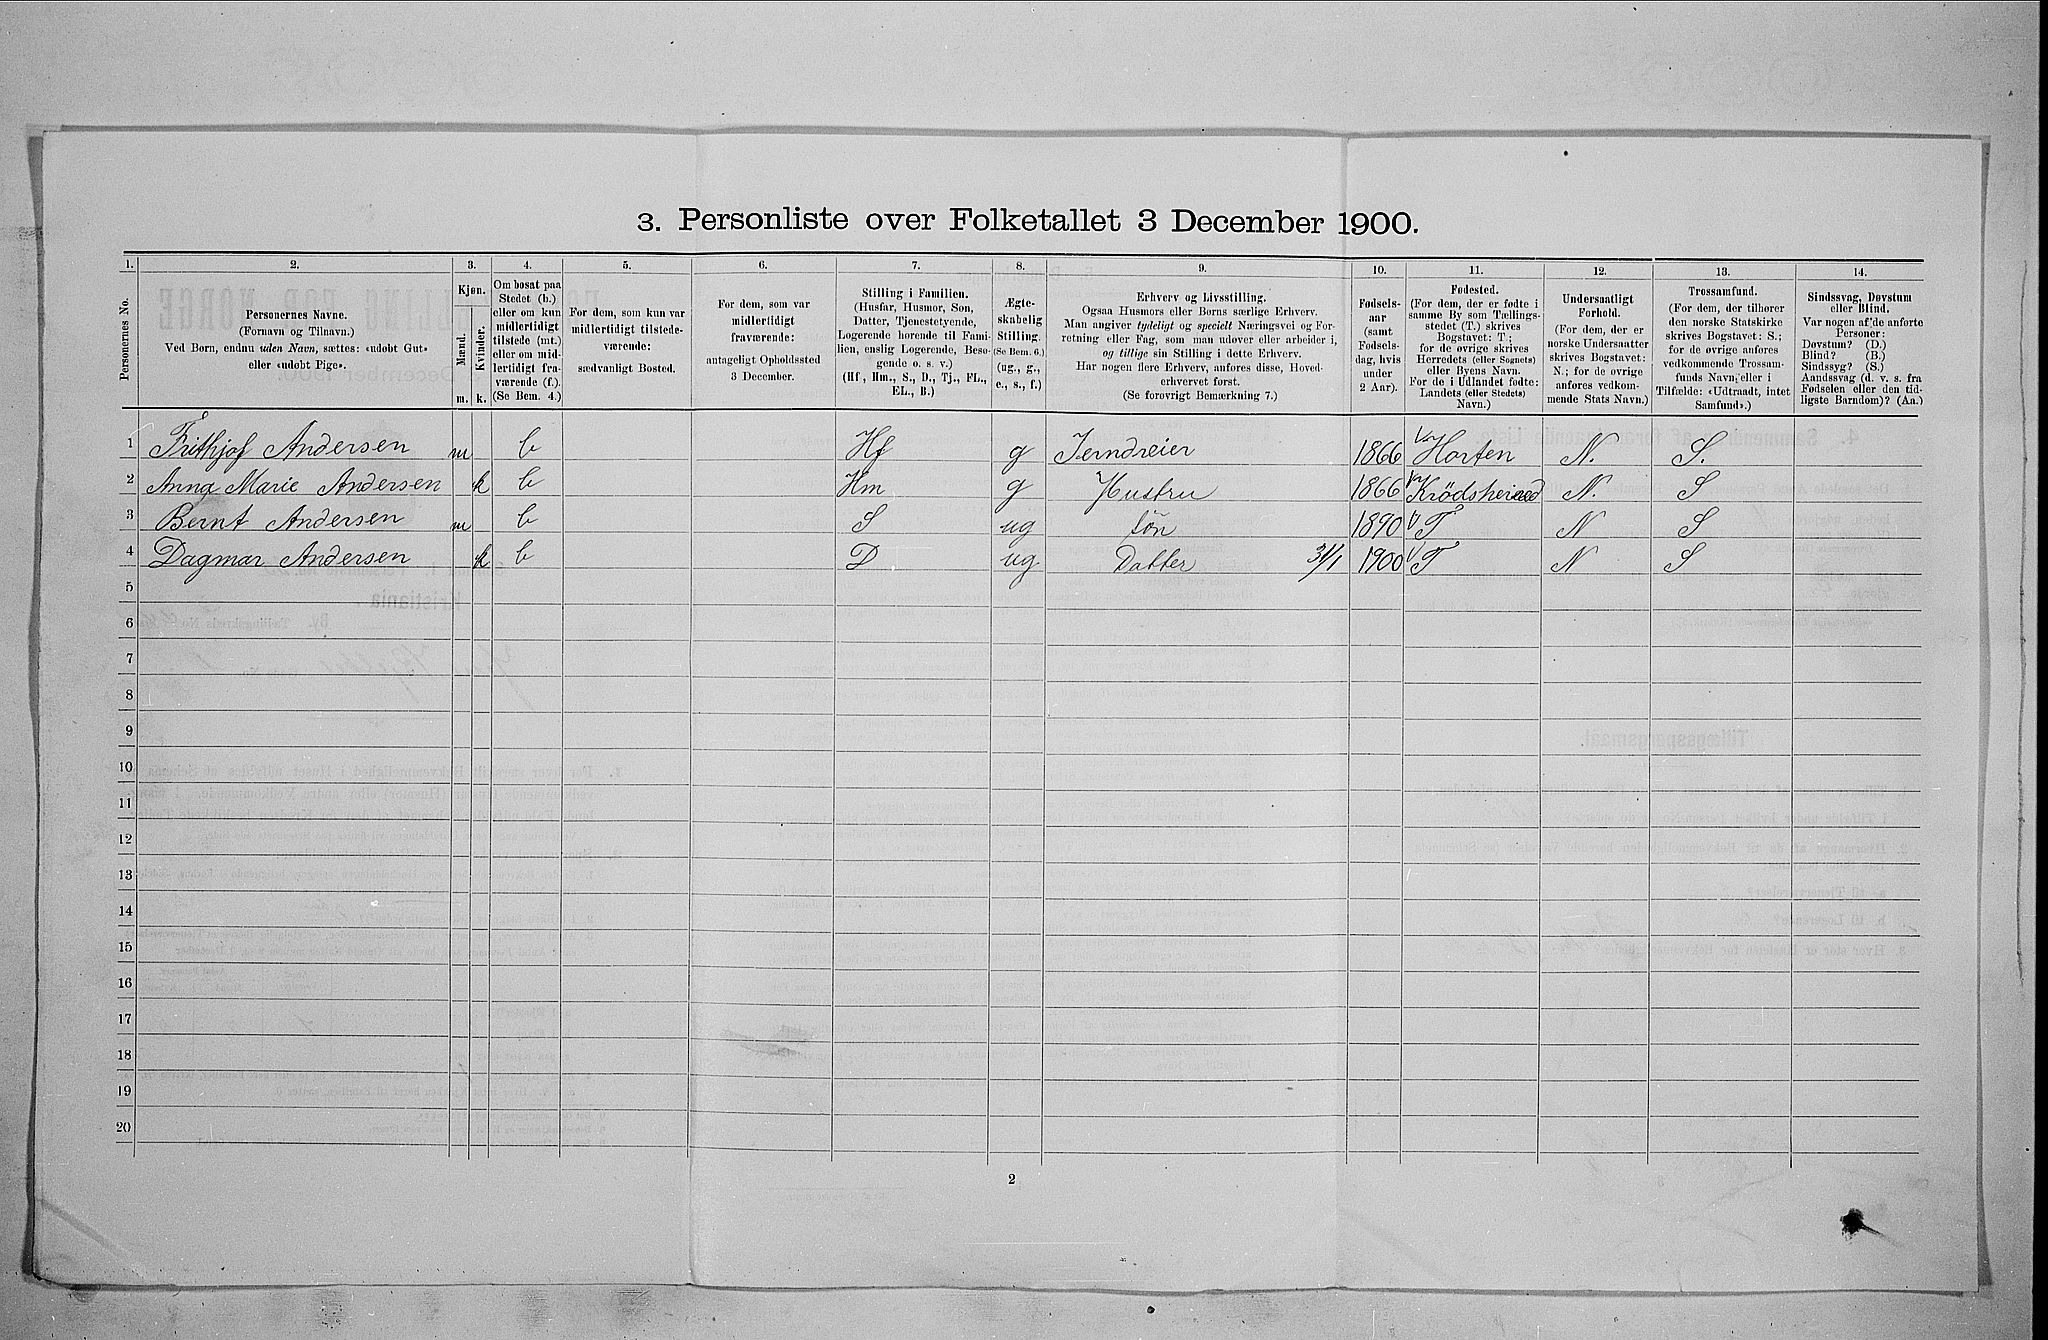 3. Personliste over Folketallet 3 December 1900.
1. 2. 3. 4. 5. 6. 7. 8. 9. 10. 11. 12. 13. 14.
Personernes No.
Personernes Navne.
(Fornavn og Tilnavn.)
Ved Børn, endnu uden Navn, sættes: «udøbt Gut»
eller «udøbt Pige».
Kjøn.
Mænd.
Kvinder.
m. k.
Om bosat paa
Stedet (b.)
eller om kun
midlertidigt
tilstede (mt.)
eller om mid-
lertidigt fra-
værende (f.).
(Se Bem. 4.)
For dem, som kun var
midlertidigt tilstede-
værende:
sædvanligt Bosted.
For dem, som var
midlertidigt
fraværende:
antageligt Opholdssted
3 December.
Stilling i Familien.
(Husfar, Husmor, Søn,
Datter, Tjenestetyende,
Logerende hørende til Fami-
lien, enslig Logerende, Besø-
gende o. s. v.)
(Hf., Hm., S., D., Tj., FL.,
EL., B.)
Ægte-
skabelig
Stilling.
(Se Bem. 6.)
(ug., g.,
e., s., f.)
Erhverv og Livsstilling.
Ogsaa Husmors eller Børns særlige Erhverv.
Man angiver tydeligt og specielt Næringsvei og For-
retning eller Fag, som man udøver eller arbeider i,
og tillige sin Stilling i dette Erhverv.
Har nogen flere Erhverv, anføres disse, Hoved-
erhvervet først.
(Se forøvrigt Bemærkning 7.)
Fødsels-
aar
(samt
Fødsels-
dag, hvis
under
2 Aar).
Fødested.
(For dem, der er fødte i
samme By som Tællings-
stedet (T.) skrives
Bogstavet: T.;
for de øvrige skrives
Herredets (eller Sognets)
eller Byens Navn.
For de i Udlandet fødte:
Landets (eller Stedets)
Navn.)
Undersaatligt
Forhold.
(For dem, der er
norske Undersaatter
skrives Bogstavet:
N.; for de øvrige
anføres vedkom-
mende Stats Navn.)
Trossamfund.
(For dem, der tilhører
den norske Statskirke
skrives Bogstavet: S.;
for de øvrige anføres
vedkommende Trossam-
funds Navn, eller i
Tilfælde: «Udtraadt, intet
Samfund».)
Sindssvag, Døvstum
eller Blind.
Var nogen af de anførte
Personer:
Døvstum? (D.)
Blind? (B.)
Sindssyg? (S.)
Aandssvag (d. v. s. fra
Fødselen eller den tid-
ligste Barndom)? (Aa.)
1 Frithjof Andersen m b Hf g Jerndreier 1866 Horten N. S.
2 Anna Marie Andersen k b Hm g Hustru 1866 Krødshered N. S
3 Bernt Andersen m b S ug søn 1890 T N S
4 Dagmar Andersen k b D ug Datter 31/1 1900 T N S
5
6
7
8
9
10
11
12
13
14
15
16
17
18
19
20
2